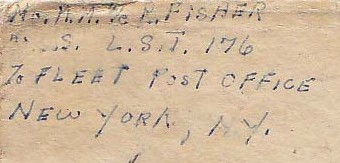 R. FISHER
S. L.S.T. 176
% FLEET POST OFFICE
NEW YORK, NY.